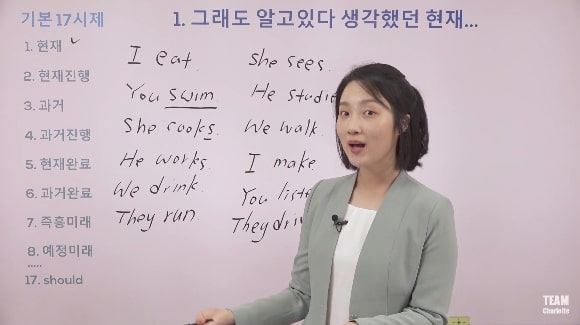 기본 17시제
1. 그래도 알고있다 생각했던 현재...
1. 현재 ✓
2. 현재진행
3. 과거
4. 과거진행
5. 현재완료
6. 과거완료
7. 즉흥미래
8. 예정미래
.....
17. should
I eat.
You swim
She cooks
He works
We drink.
They run.
She sees.
He
We walk.
I make
You
They
TEAM
Charlotte